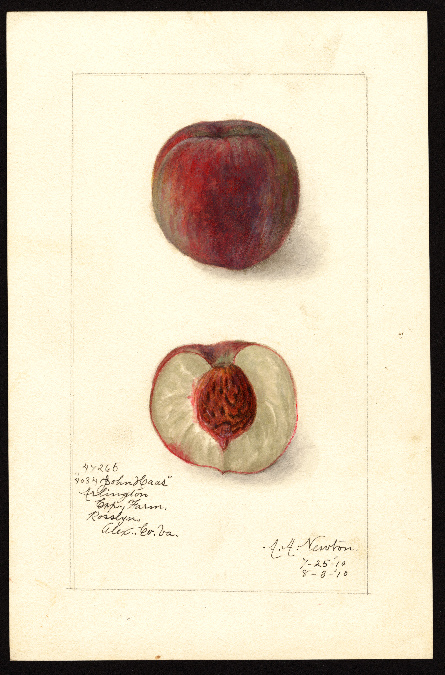 47266
"John Haas"
Arlington
Exp. Farm.
Rosslyn.
Alex. Co. Va.
A. A. Newton.
7-25'10
8-3-'10